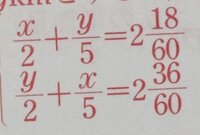 x/2 + y/5 = 2 18/60
y/2 + x/5 = 2 36/60